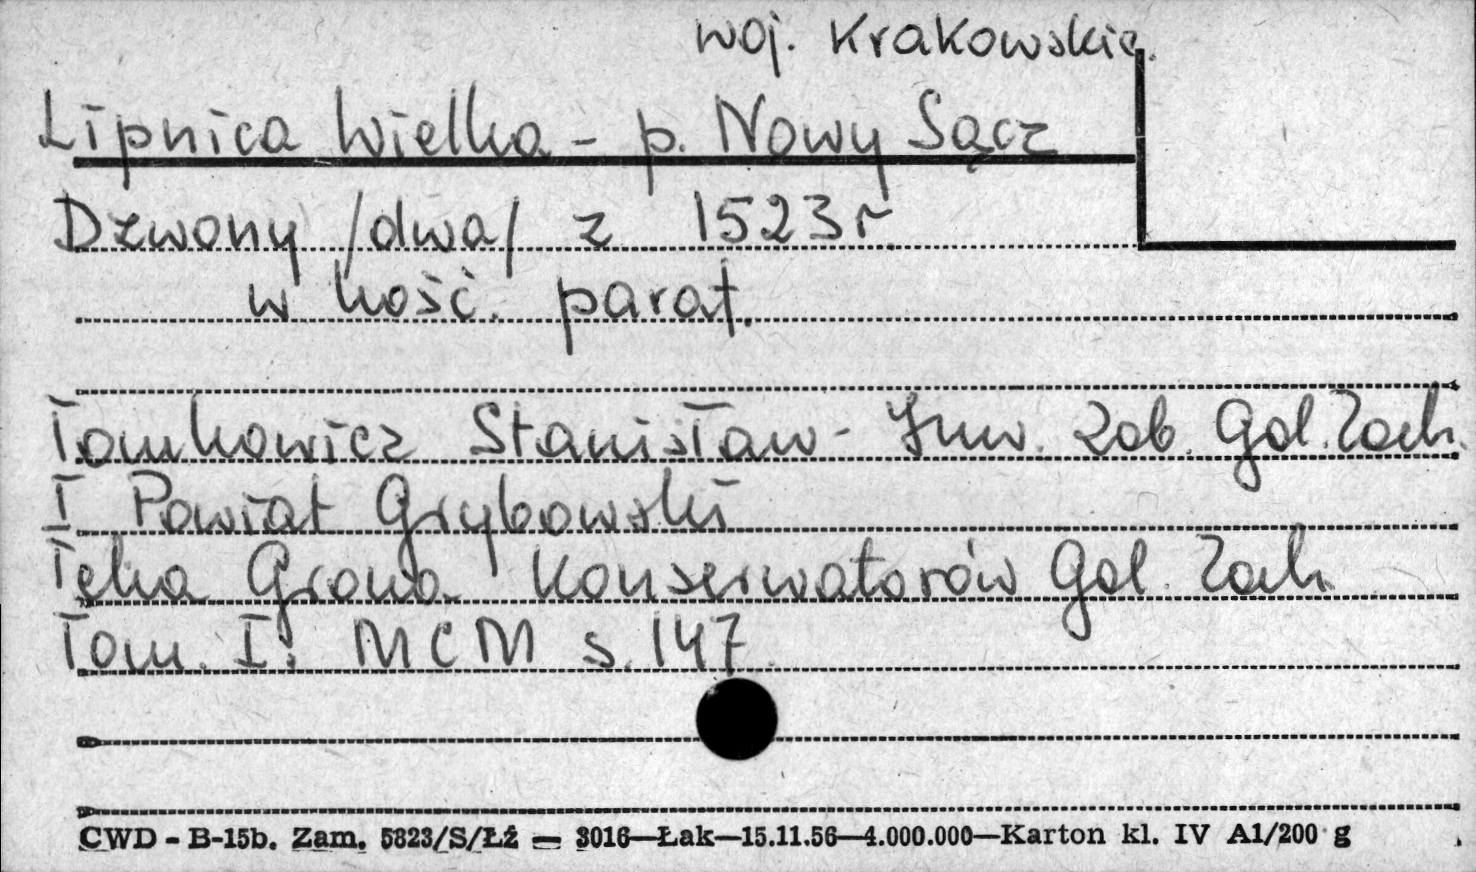 woj. Krakowskie.
Lipnica Wielka - p. Nowy Sącz
Dzwony /dwa/ z 1523 r.
w kość. paraf.
Tomkowicz Stanisław - Inw. Zab. Gal. Zach.
I Powiat Grybowski
Teka Grona Konserwatorów Gal. Zach.
Tom. I. MCM s. 147.
CWD - B-15b. Zam. 5823/S/ŁŻ — 3016—Łak—15.11.56—4.000.000—Karton kl. IV A1/200 g